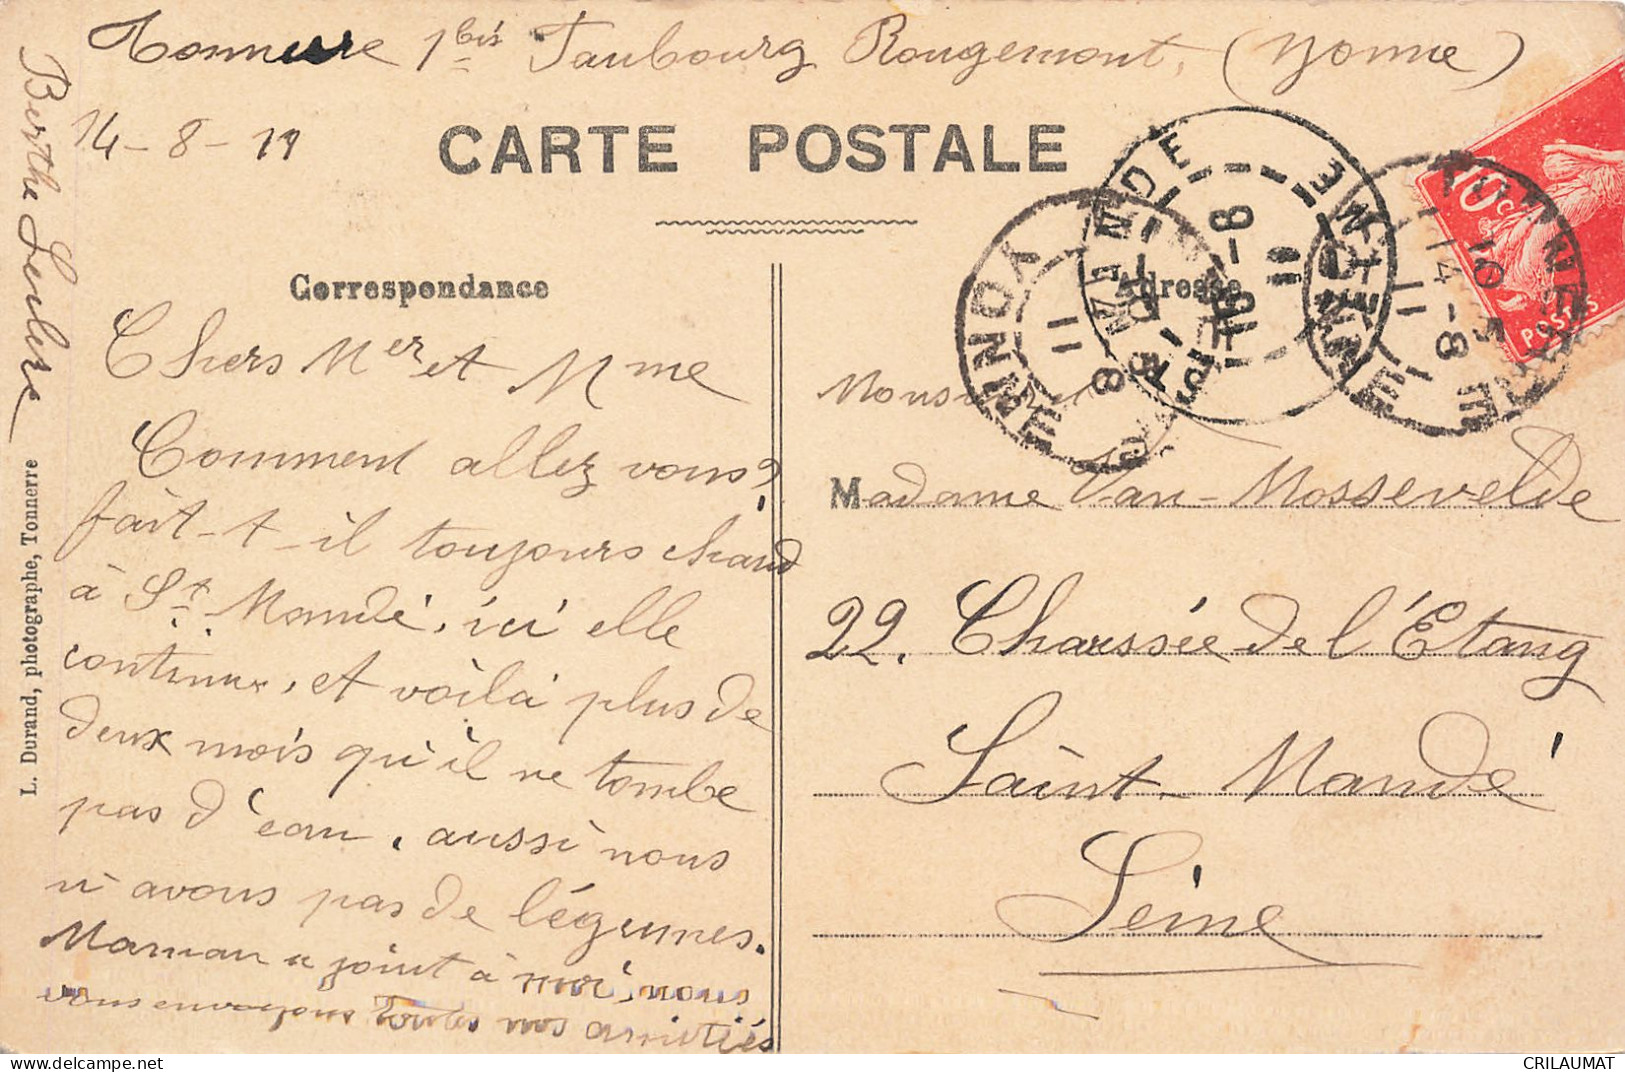 Tonnerre 1bis Faubourg Rougemont, (Yonne)
14-8-11
CARTE POSTALE
Correspondance
Adresse
Chers Mer et Mme
Comment allez vous?
fait-t-il toujours chaud
à St Mandé, ici elle
continue, et voilà plus de
deux mois qu'il ne tombe
pas d'eau, aussi nous
n'avons pas de légumes.
Maman se joint à moi, nous
vous envoyons toutes nos amitiés
Berthe
L. Durand, photographe, Tonnerre
Monsieur
Madame Van-Mossevelde
22. Chaussée de l'Etang
Saint-Mandé
Seine
10c
POSTES
YONNE
11
8
ST MANDE
SEINE
15-8
11
YONNE
14-8
11
CRILAUMAT